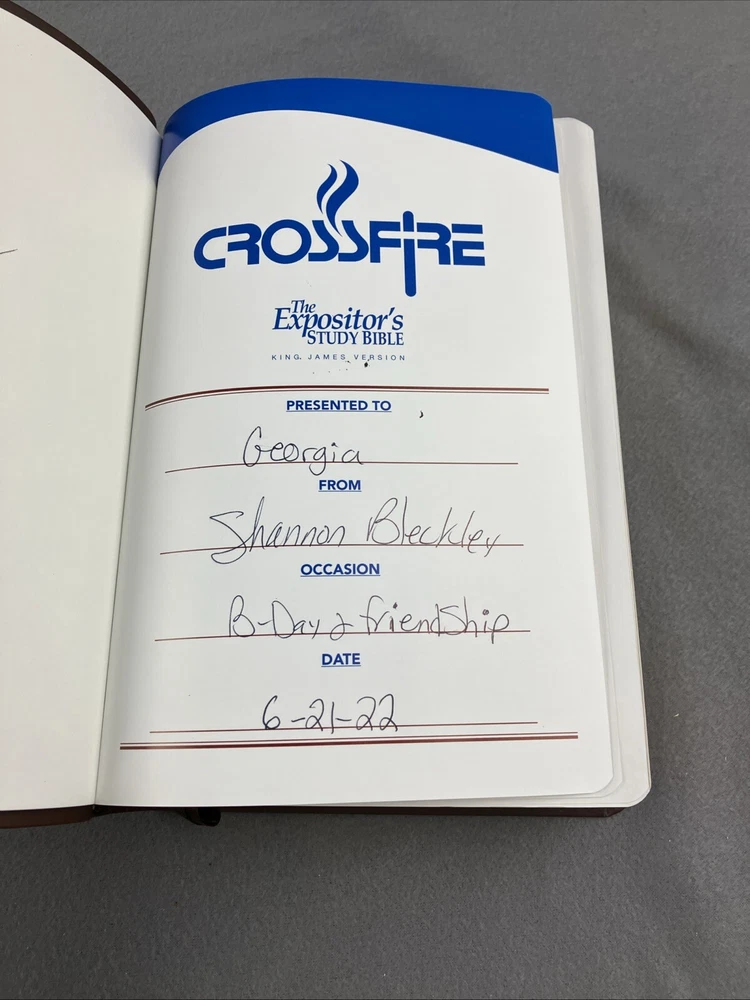 CROSSFIRE
The
Expositor's
STUDY BIBLE
KING JAMES VERSION
PRESENTED TO
Georgia
FROM
Shannon Bleckley
OCCASION
B-Day & friendship
DATE
6-21-22